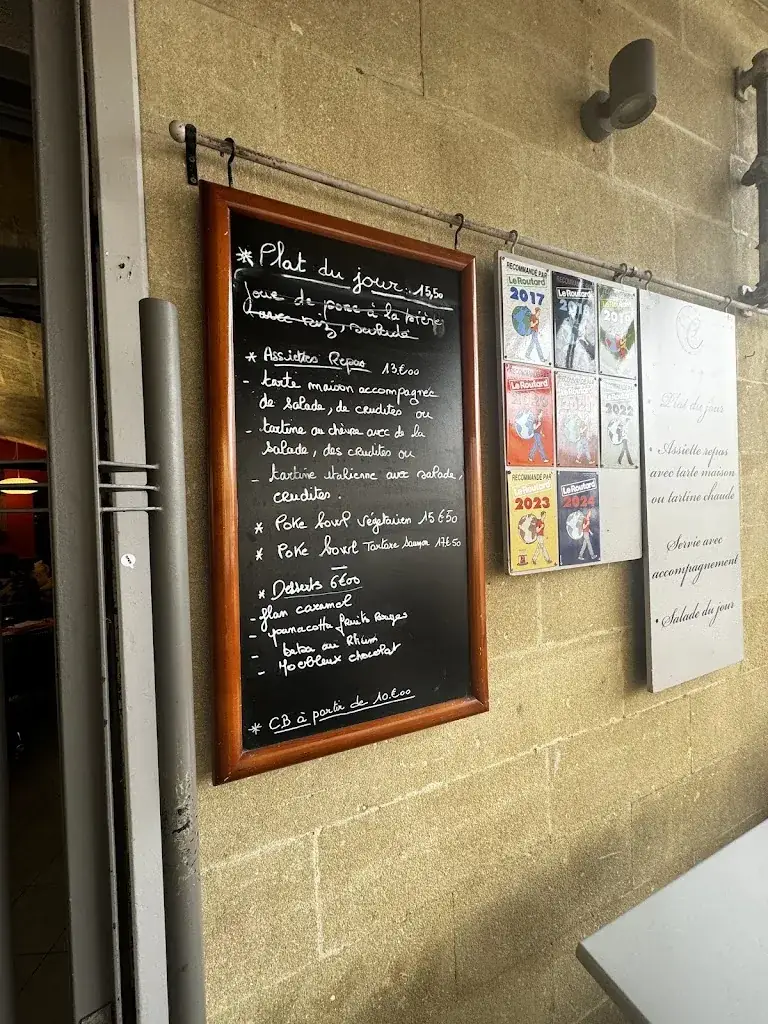 * Plat du jour : 15,50
Joue de porc à la bière
avec riz, salade
* Assiettes Repas 13€00
- tarte maison accompagnée
de salade, de crudités ou
- tartine au chèvre avec de la
salade, des crudités ou
- tartine italienne avec salade,
crudités.
* Poke bowl végétarien 15€50
* Poke bowl Tartare Saumon 17€50
* Desserts 6€00
- flan caramel
- panacotta fruits rouges
- baba au Rhum
- Moelleux chocolat
* CB à partir de 10€00
RECOMMANDÉ PAR
Le Routard
2017
Le Routard
Le Routard
Le Routard
2022
RECOMMANDÉ PAR
2023
Le Routard
2024
Plat du jour
• Assiette repas
avec tarte maison
ou tartine chaude
Servie avec
accompagnement
• Salade du jour